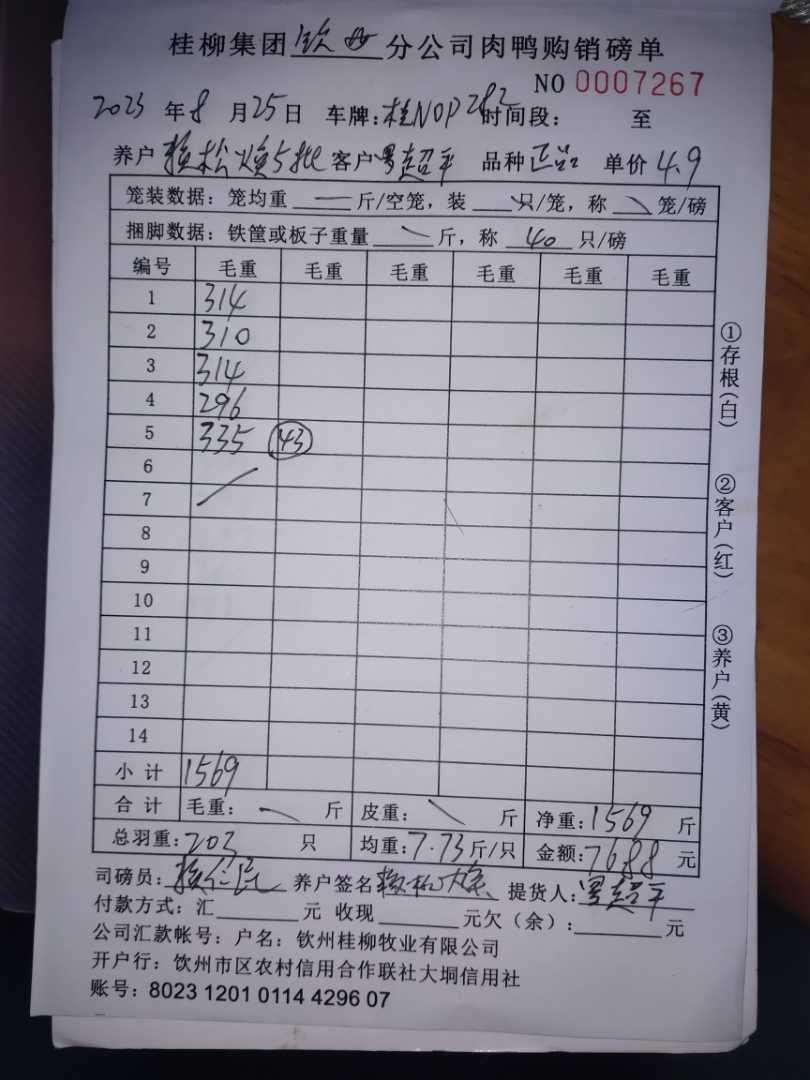 桂柳集团钦州分公司肉鸭购销磅单
NO 0007267
2023年8月25日 车牌:桂N0P282 时间段: 至
养户 松焕5批 客户 超平 品种 正品 单价 4.9
笼装数据:笼均重 — 斤/空笼,装 \ 只/笼,称 \ 笼/磅
捆脚数据:铁筐或板子重量 \ 斤,称 40 只/磅
编号 毛重 毛重 毛重 毛重 毛重 毛重
1 314
2 310
3 314
4 296
5 335 43
6
7
8
9
10
11
12
13
14
小计 1569
合计 毛重: \ 斤 皮重: \ 斤 净重:1569 斤
总羽重:203 只 均重:7.73斤/只 金额:7688 元
司磅员: 养户签名 松焕 提货人: 超平
付款方式:汇 元 收现 元欠(余): 元
公司汇款帐号:户名:钦州桂柳牧业有限公司
开户行:钦州市区农村信用合作联社大垌信用社
账号:8023 1201 0114 4296 07
①存根(白)
②客户(红)
③养户(黄)